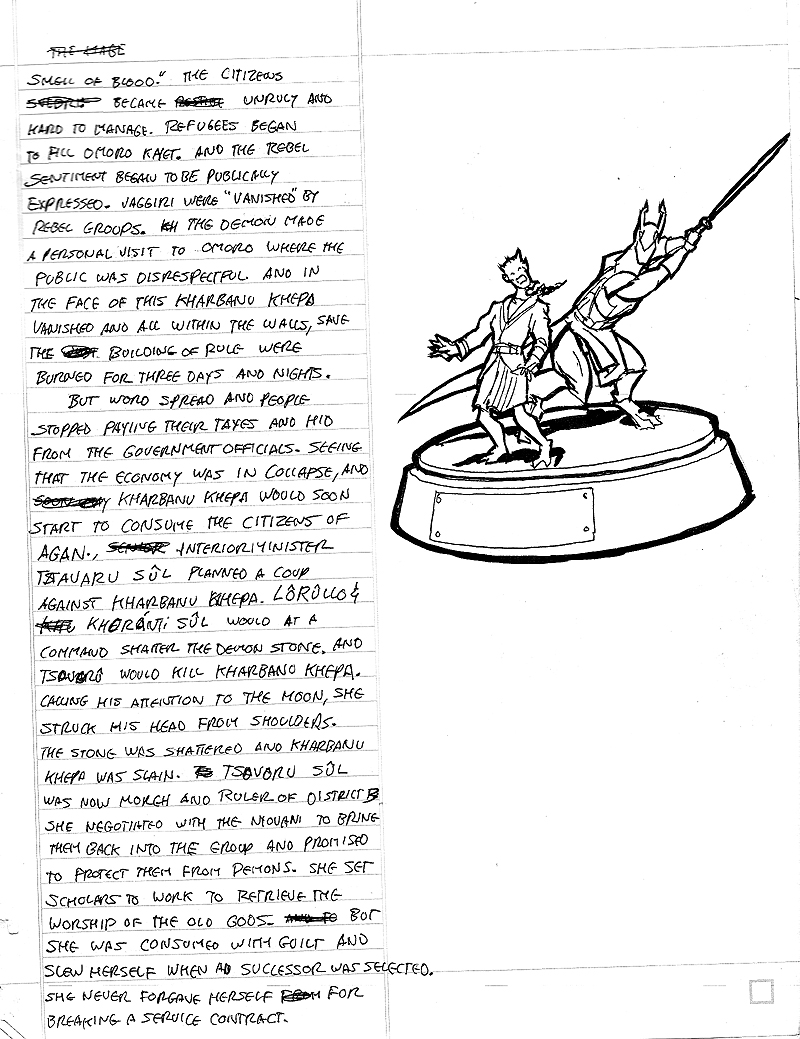 THE IMAGE
SMELL OF BLOOD." THE CITIZENS
BECAME UNRULY AND
HARD TO MANAGE. REFUGEES BEGAN
TO FILL OMORO KAET. AND THE REBEL
SENTIMENT BEGAN TO BE PUBLICALLY
EXPRESSED. VAGGIRI WERE "VANISHED" BY
REBEL GROUPS. THE DEMON MADE
A PERSONAL VISIT TO OMORO WHERE THE
PUBLIC WAS DISRESPECTFUL AND IN
THE FACE OF THIS KHARBANU KHEPA
VANISHED AND ALL WITHIN THE WALLS, SAVE
THE BUILDING OF RULE WERE
BURNED FOR THREE DAYS AND NIGHTS.
BUT WORD SPREAD AND PEOPLE
STOPPED PAYING THEIR TAXES AND HID
FROM THE GOVERNMENT OFFICIALS. SEEING
THAT THE ECONOMY WAS IN COLLAPSE, AND
KHARBANU KHEPA WOULD SOON
START TO CONSUME THE CITIZENS OF
AGAN., INTERIOR MINISTER
TSAVARU SÛL PLANNED A COUP
AGAINST KHARBANU KHEPA. LÔRÛLLO &
KHORÁNTI SÛL WOULD AT A
COMMAND SHATTER THE DEMON STONE. AND
TSAVARÛ WOULD KILL KHARBANU KHEPA.
CALLING HIS ATTENTION TO THE MOON, SHE
STRUCK HIS HEAD FROM SHOULDERS.
THE STONE WAS SHATTERED AND KHARBANU
KHEPA WAS SLAIN. TSAVARU SÛL
WAS NOW MORGH AND RULER OF DISTRICT B
SHE NEGOTIATED WITH THE NIOVANI TO BRING
THEM BACK INTO THE GROUP AND PROMISED
TO PROTECT THEM FROM DEMONS. SHE SET
SCHOLARS TO WORK TO RETRIEVE THE
WORSHIP OF THE OLD GODS. BUT
SHE WAS CONSUMED WITH GUILT AND
SLEW HERSELF WHEN A SUCCESSOR WAS SELECTED.
SHE NEVER FORGAVE HERSELF FOR
BREAKING A SERVICE CONTRACT.